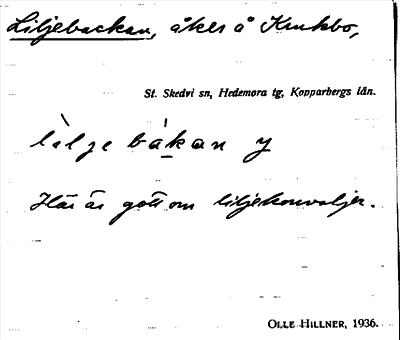 Liljebackan, åker å Krukbo,
St. Skedvi sn, Hedemora tg, Kopparbergs län.
lìlje bákan y
Här är gott om liljekonvaljer.
OLLE HILLNER, 1936.